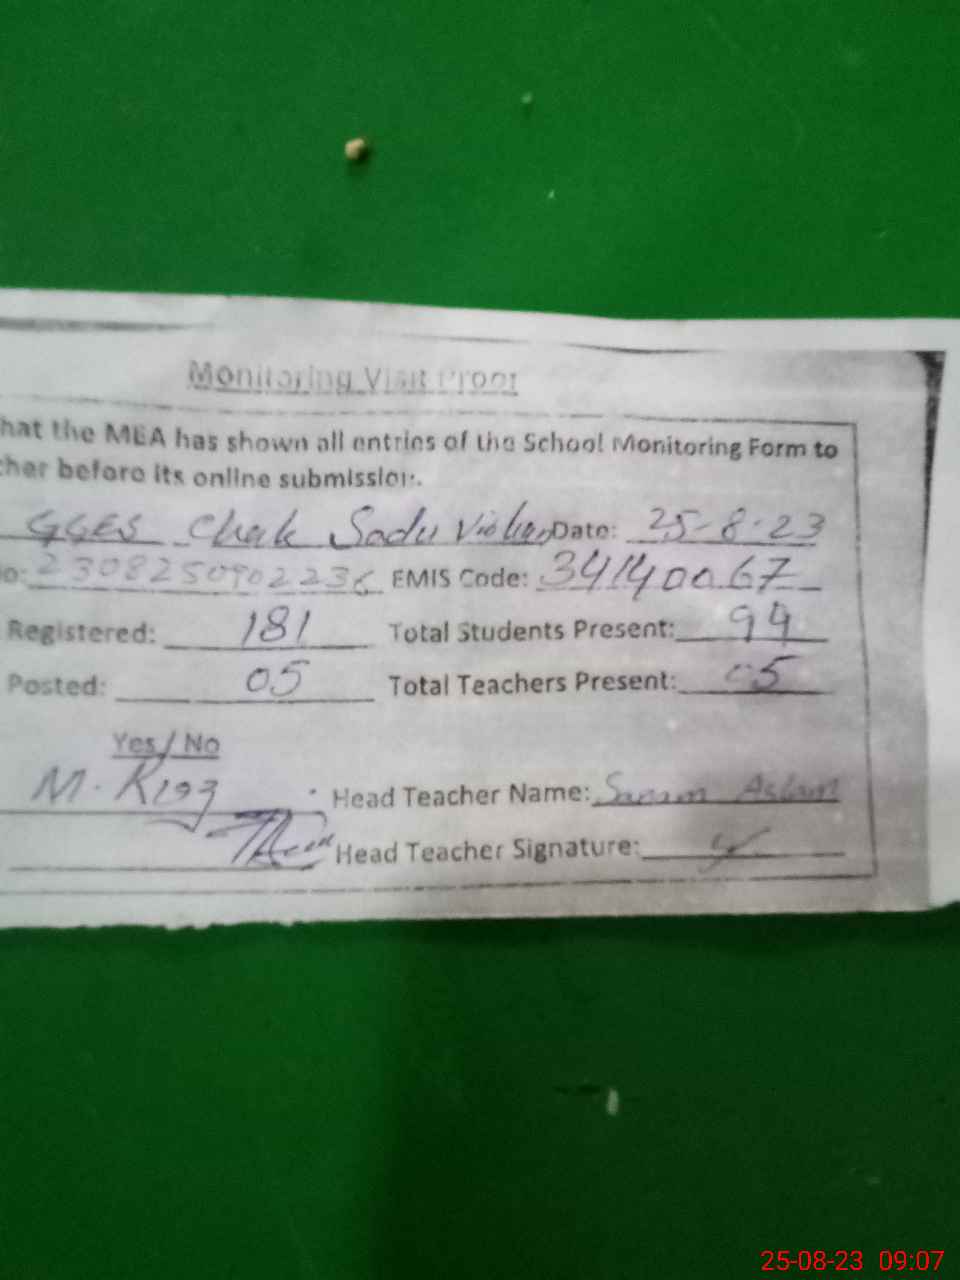 Monitoring Visit Proof
hat the MEA has shown all entries of the School Monitoring Form to
cher before its online submission.
GGES Chak Sadu Date: 25-8-23
o: EMIS Code: 34140067
Registered: 181 Total Students Present: 94
Posted: 05 Total Teachers Present: 05
Yes/No
M. Riaz Head Teacher Name: Aslam
Head Teacher Signature:
25-08-23 09:07